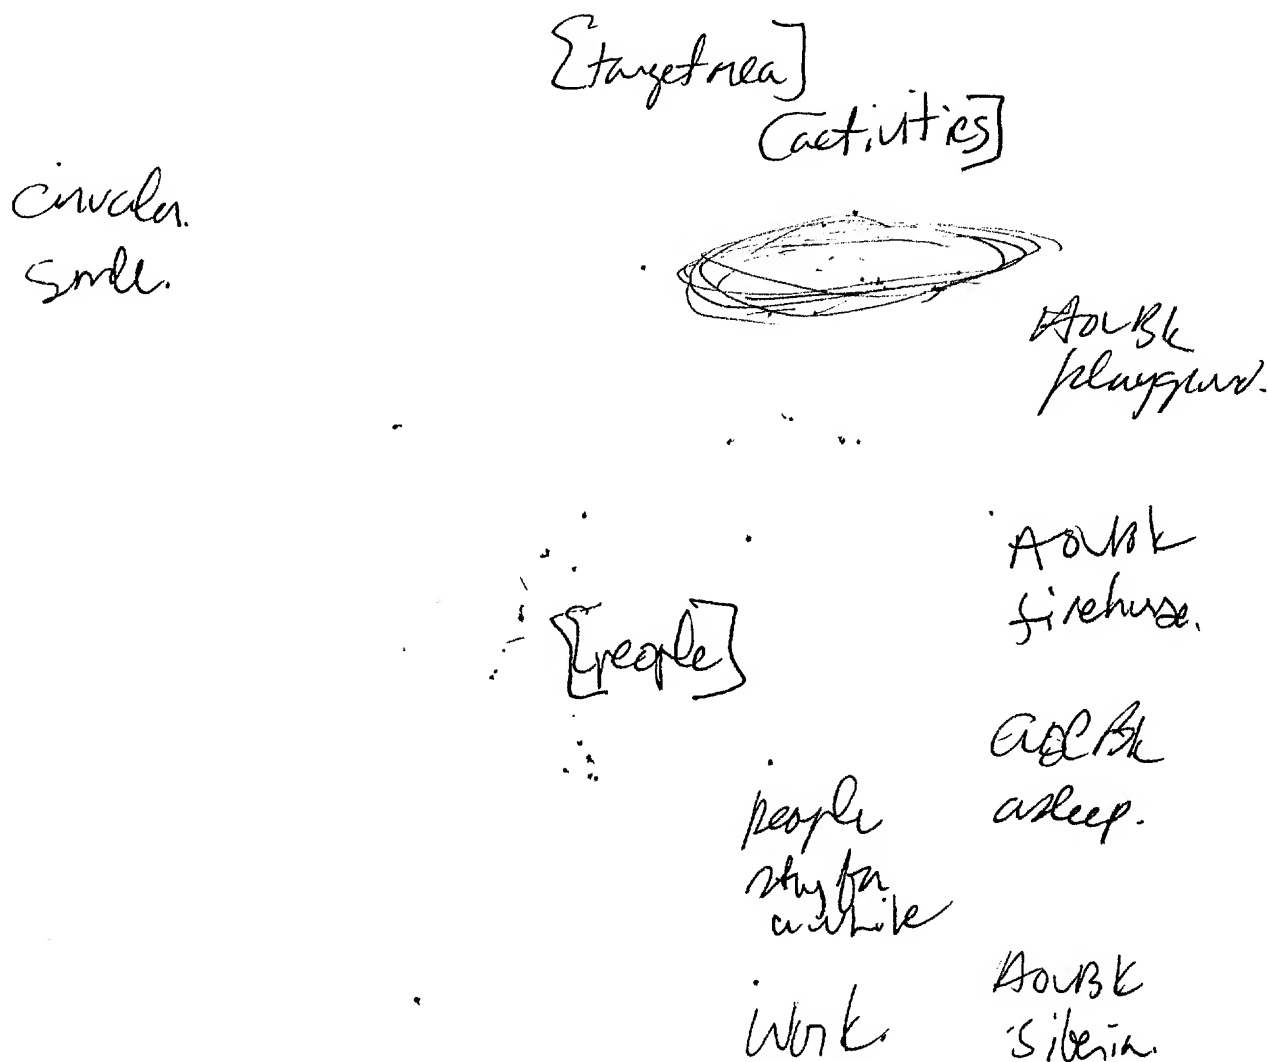 [target area]
[activities]
circular.
smell.
AOL Bk
playground.
AOL Bk
firehouse.
[people]
AOL Bk
asleep.
people
stay for
awhile
AOL BK
Siberia.
Work.